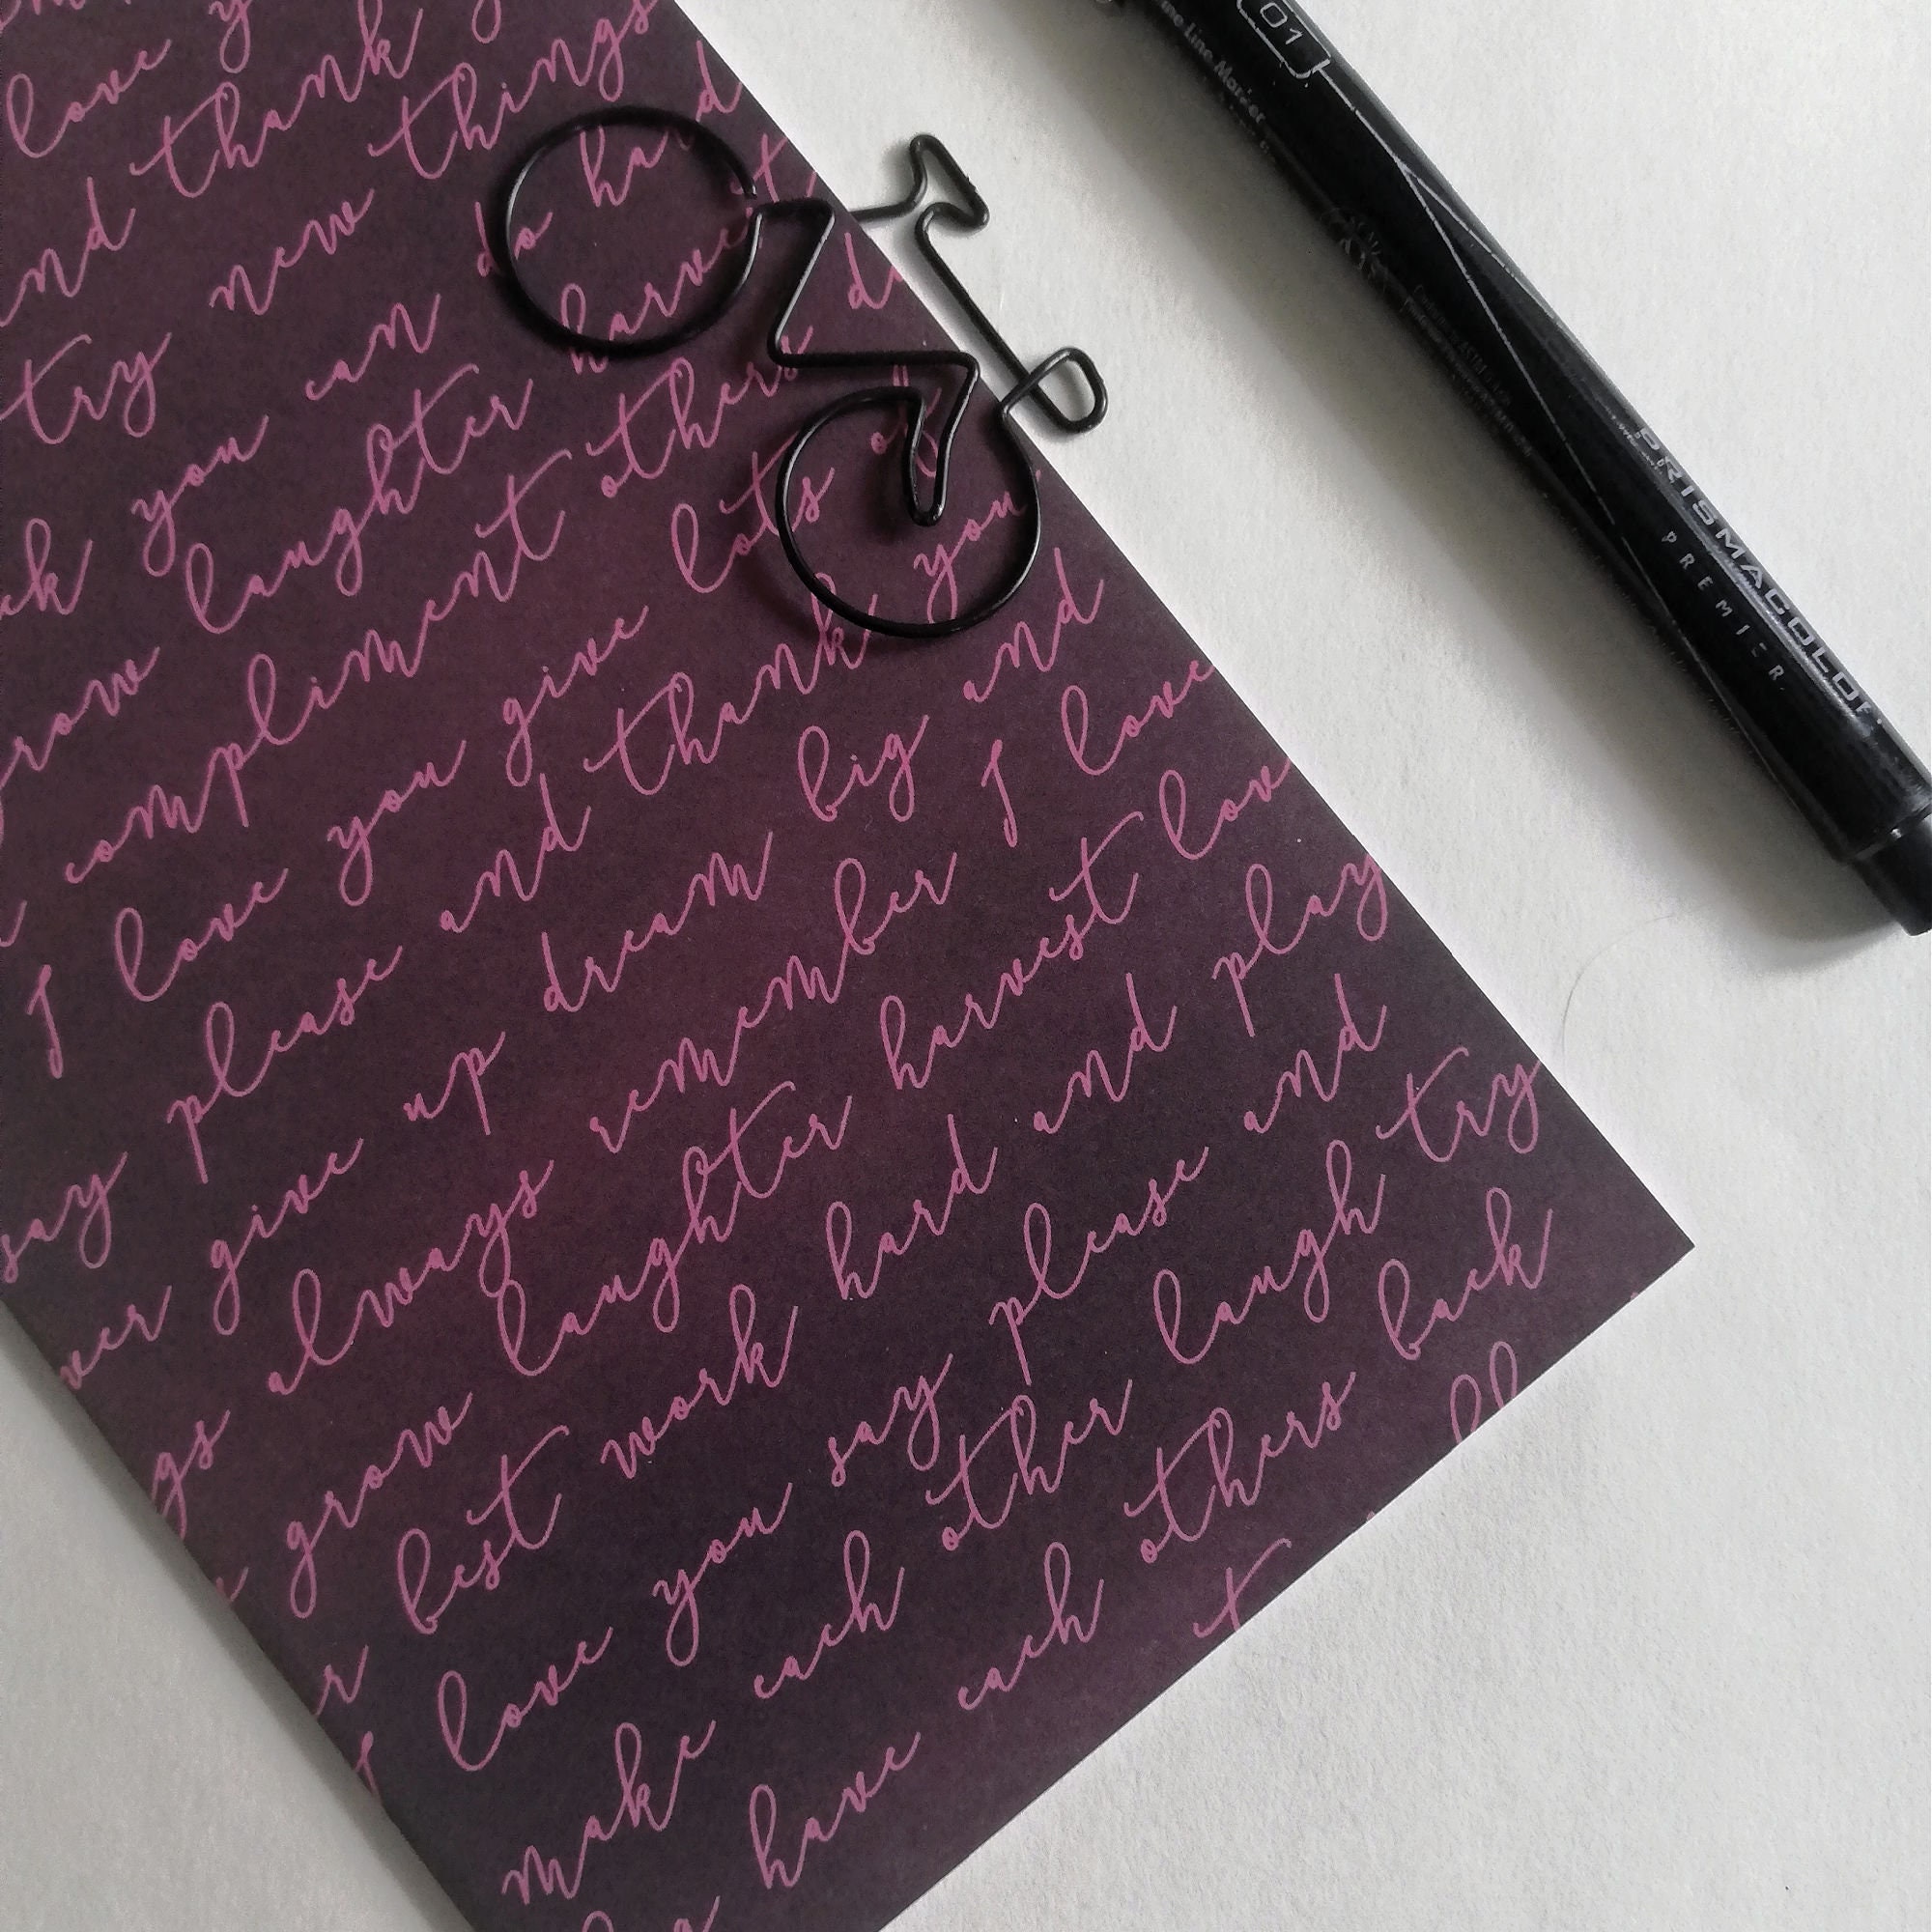 love
and thank
try new things
you can do hard
grow laughter harvest
compliment others
I love you give lots of
say please and thank you
never give up dream big and
always remember I love
grow laughter harvest love
best work hard and play
I love you say please and
make each other laugh try
have each others back
01
PRISMACOLOR
PREMIER